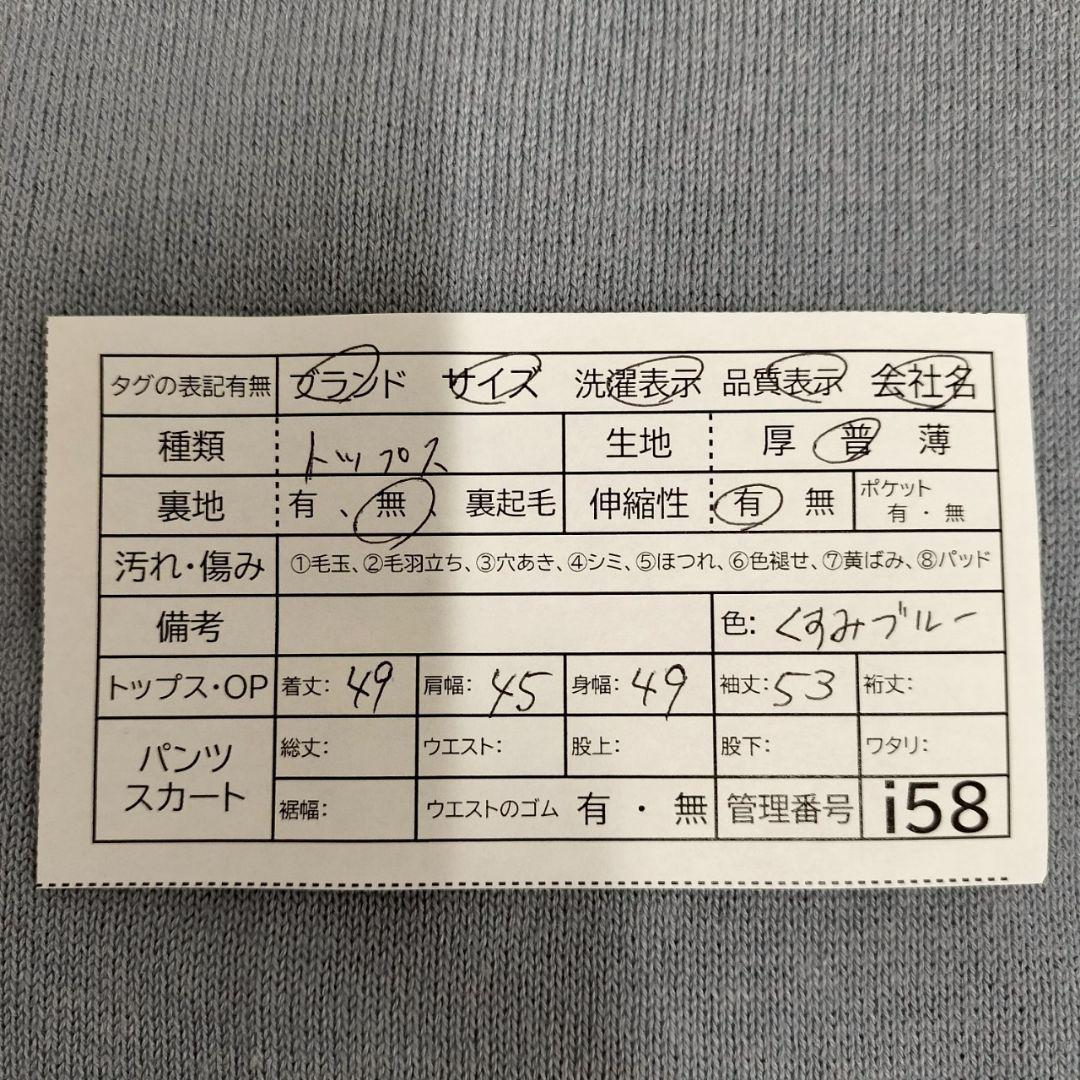 タグの表記有無 ブランド サイズ 洗濯表示 品質表示 会社名
種類 トップス 生地 厚 普 薄
裏地 有 、 無 、 裏起毛 伸縮性 有 無 ポケット 有 ・ 無
汚れ・傷み ①毛玉、②毛羽立ち、③穴あき、④シミ、⑤ほつれ、⑥色褪せ、⑦黄ばみ、⑧パッド
備考 色: くすみブルー
トップス・OP 着丈: 49 肩幅: 45 身幅: 49 袖丈: 53 裄丈:
パンツ スカート 総丈: ウエスト: 股上: 股下: ワタリ:
裾幅: ウエストのゴム 有 ・ 無 管理番号 i58